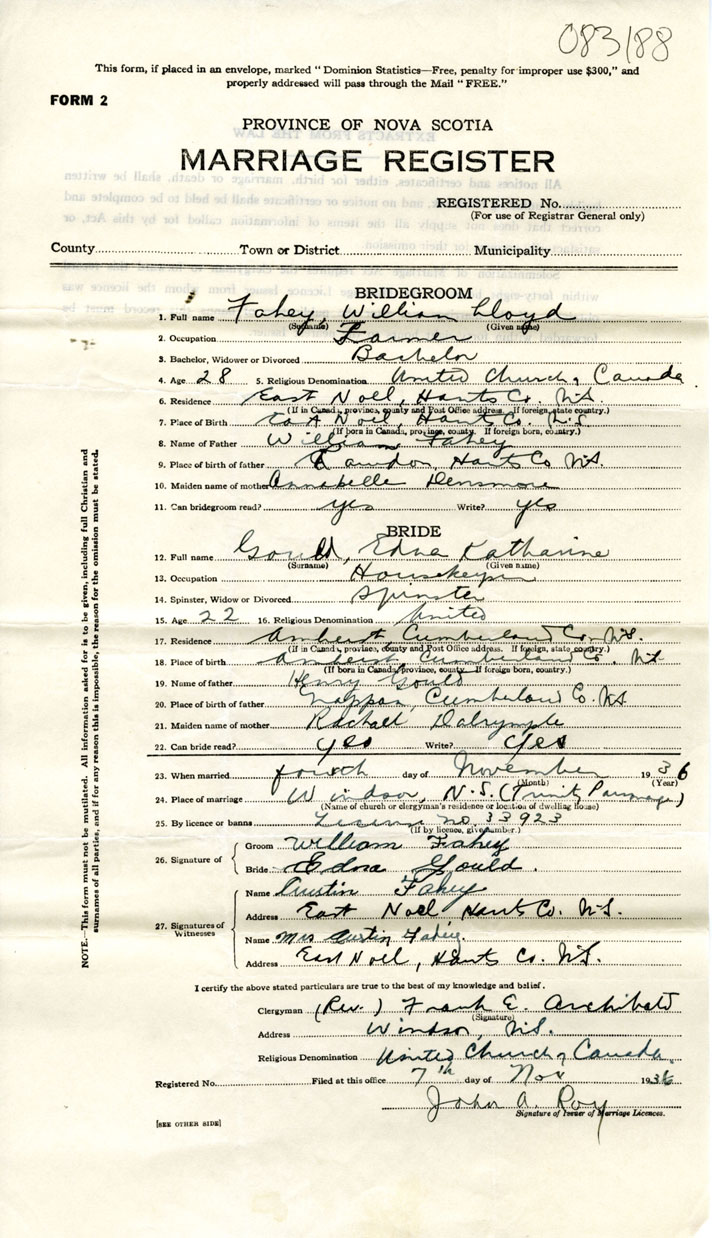 083188
This form, if placed in an envelope, marked "Dominion Statistics—Free, penalty for improper use $300," and
properly addressed will pass through the Mail "FREE."
FORM 2
PROVINCE OF NOVA SCOTIA
MARRIAGE REGISTER
REGISTERED No.
(For use of Registrar General only)
County Town or District Municipality
BRIDEGROOM
1. Full name Fahey, William Lloyd
(Surname) (Given name)
2. Occupation Farmer
3. Bachelor, Widower or Divorced Bachelor
4. Age 28 5. Religious Denomination United Church of Canada
6. Residence East Noel, Hants Co. N.S.
(If in Canada, province, county and Post Office address. If foreign, state country.)
7. Place of Birth Noel, Hants Co. N.S.
(If born in Canada, province, county. If foreign born, country.)
8. Name of Father William Fahey
9. Place of birth of father Rawdon, Hants Co N.S.
10. Maiden name of mother Annabelle Densmore
11. Can bridegroom read? yes Write? yes
BRIDE
12. Full name Gould, Edna Katharine
(Surname) (Given name)
13. Occupation Housekeeper
14. Spinster, Widow or Divorced Spinster
15. Age 22 16. Religious Denomination United
17. Residence Amherst, Cumberland Co. N.S.
(If in Canada, province, county and Post Office address. If foreign, state country.)
18. Place of birth Amherst Cumberland Co. N.S.
(If born in Canada, province, county. If foreign born, country.)
19. Name of father Henry Gould
20. Place of birth of father Nappan, Cumberland Co. N.S.
21. Maiden name of mother Rachael Dalrymple
22. Can bride read? yes Write? yes
23. When married fourth day of November 1936
(Month) (Year)
24. Place of marriage Windsor, N.S. (Trinity Parsonage)
(Name of church or clergyman's residence or location of dwelling house)
25. By licence or banns License no. 33923
(If by licence, give number.)
26. Signature of Groom William Fahey
Bride Edna Gould.
27. Signatures of Witnesses
Name Austin Fahey
Address East Noel Hants Co. N.S.
Name Mrs Austin Fahey.
Address East Noel, Hants Co. N.S.
I certify the above stated particulars are true to the best of my knowledge and belief.
Clergyman (Rev.) Frank E. Archibald
(Signature)
Address Windsor, N.S.
Religious Denomination United Church of Canada.
Registered No. Filed at this office 7th day of Nov 1936
John A. Roy
Signature of Issuer of Marriage Licences.
[SEE OTHER SIDE]
NOTE.—This form must not be mutilated. All information asked for is to be given, including full Christian and
surnames of all parties, and if for any reason this is impossible, the reason for the omission must be stated.